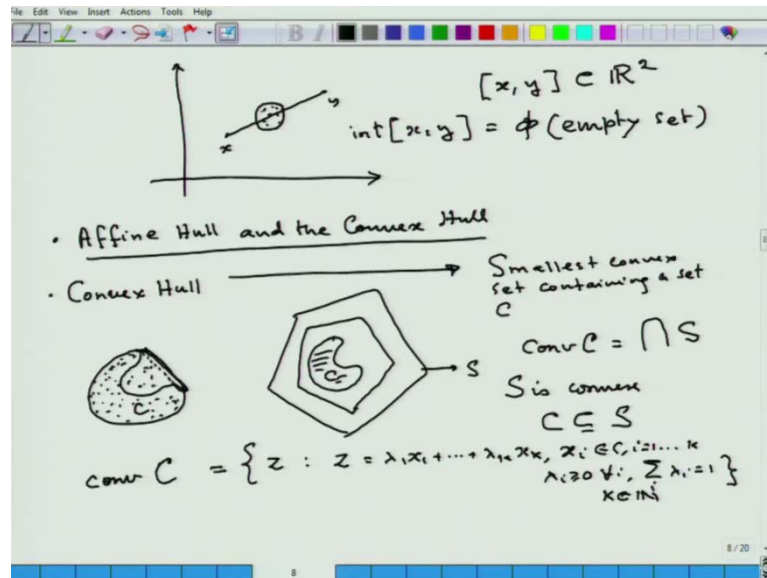 File Edit View Insert Actions Tools Help
B I
[x, y] ∈ ℝ²
int[x, y] = ϕ (empty set)
x
y
· Affine Hull and the Convex Hull
· Convex Hull → Smallest convex
set containing a set
C
conv C = ⋂ S
S is convex
C ⊆ S
C
C
S
conv C = { z : z = λ₁x₁ + ... + λₖxₖ, xᵢ ∈ C, i=1...k
λᵢ ≥ 0 ∀i, ∑ λᵢ = 1 }
k ∈ ℕ
8 / 20
8